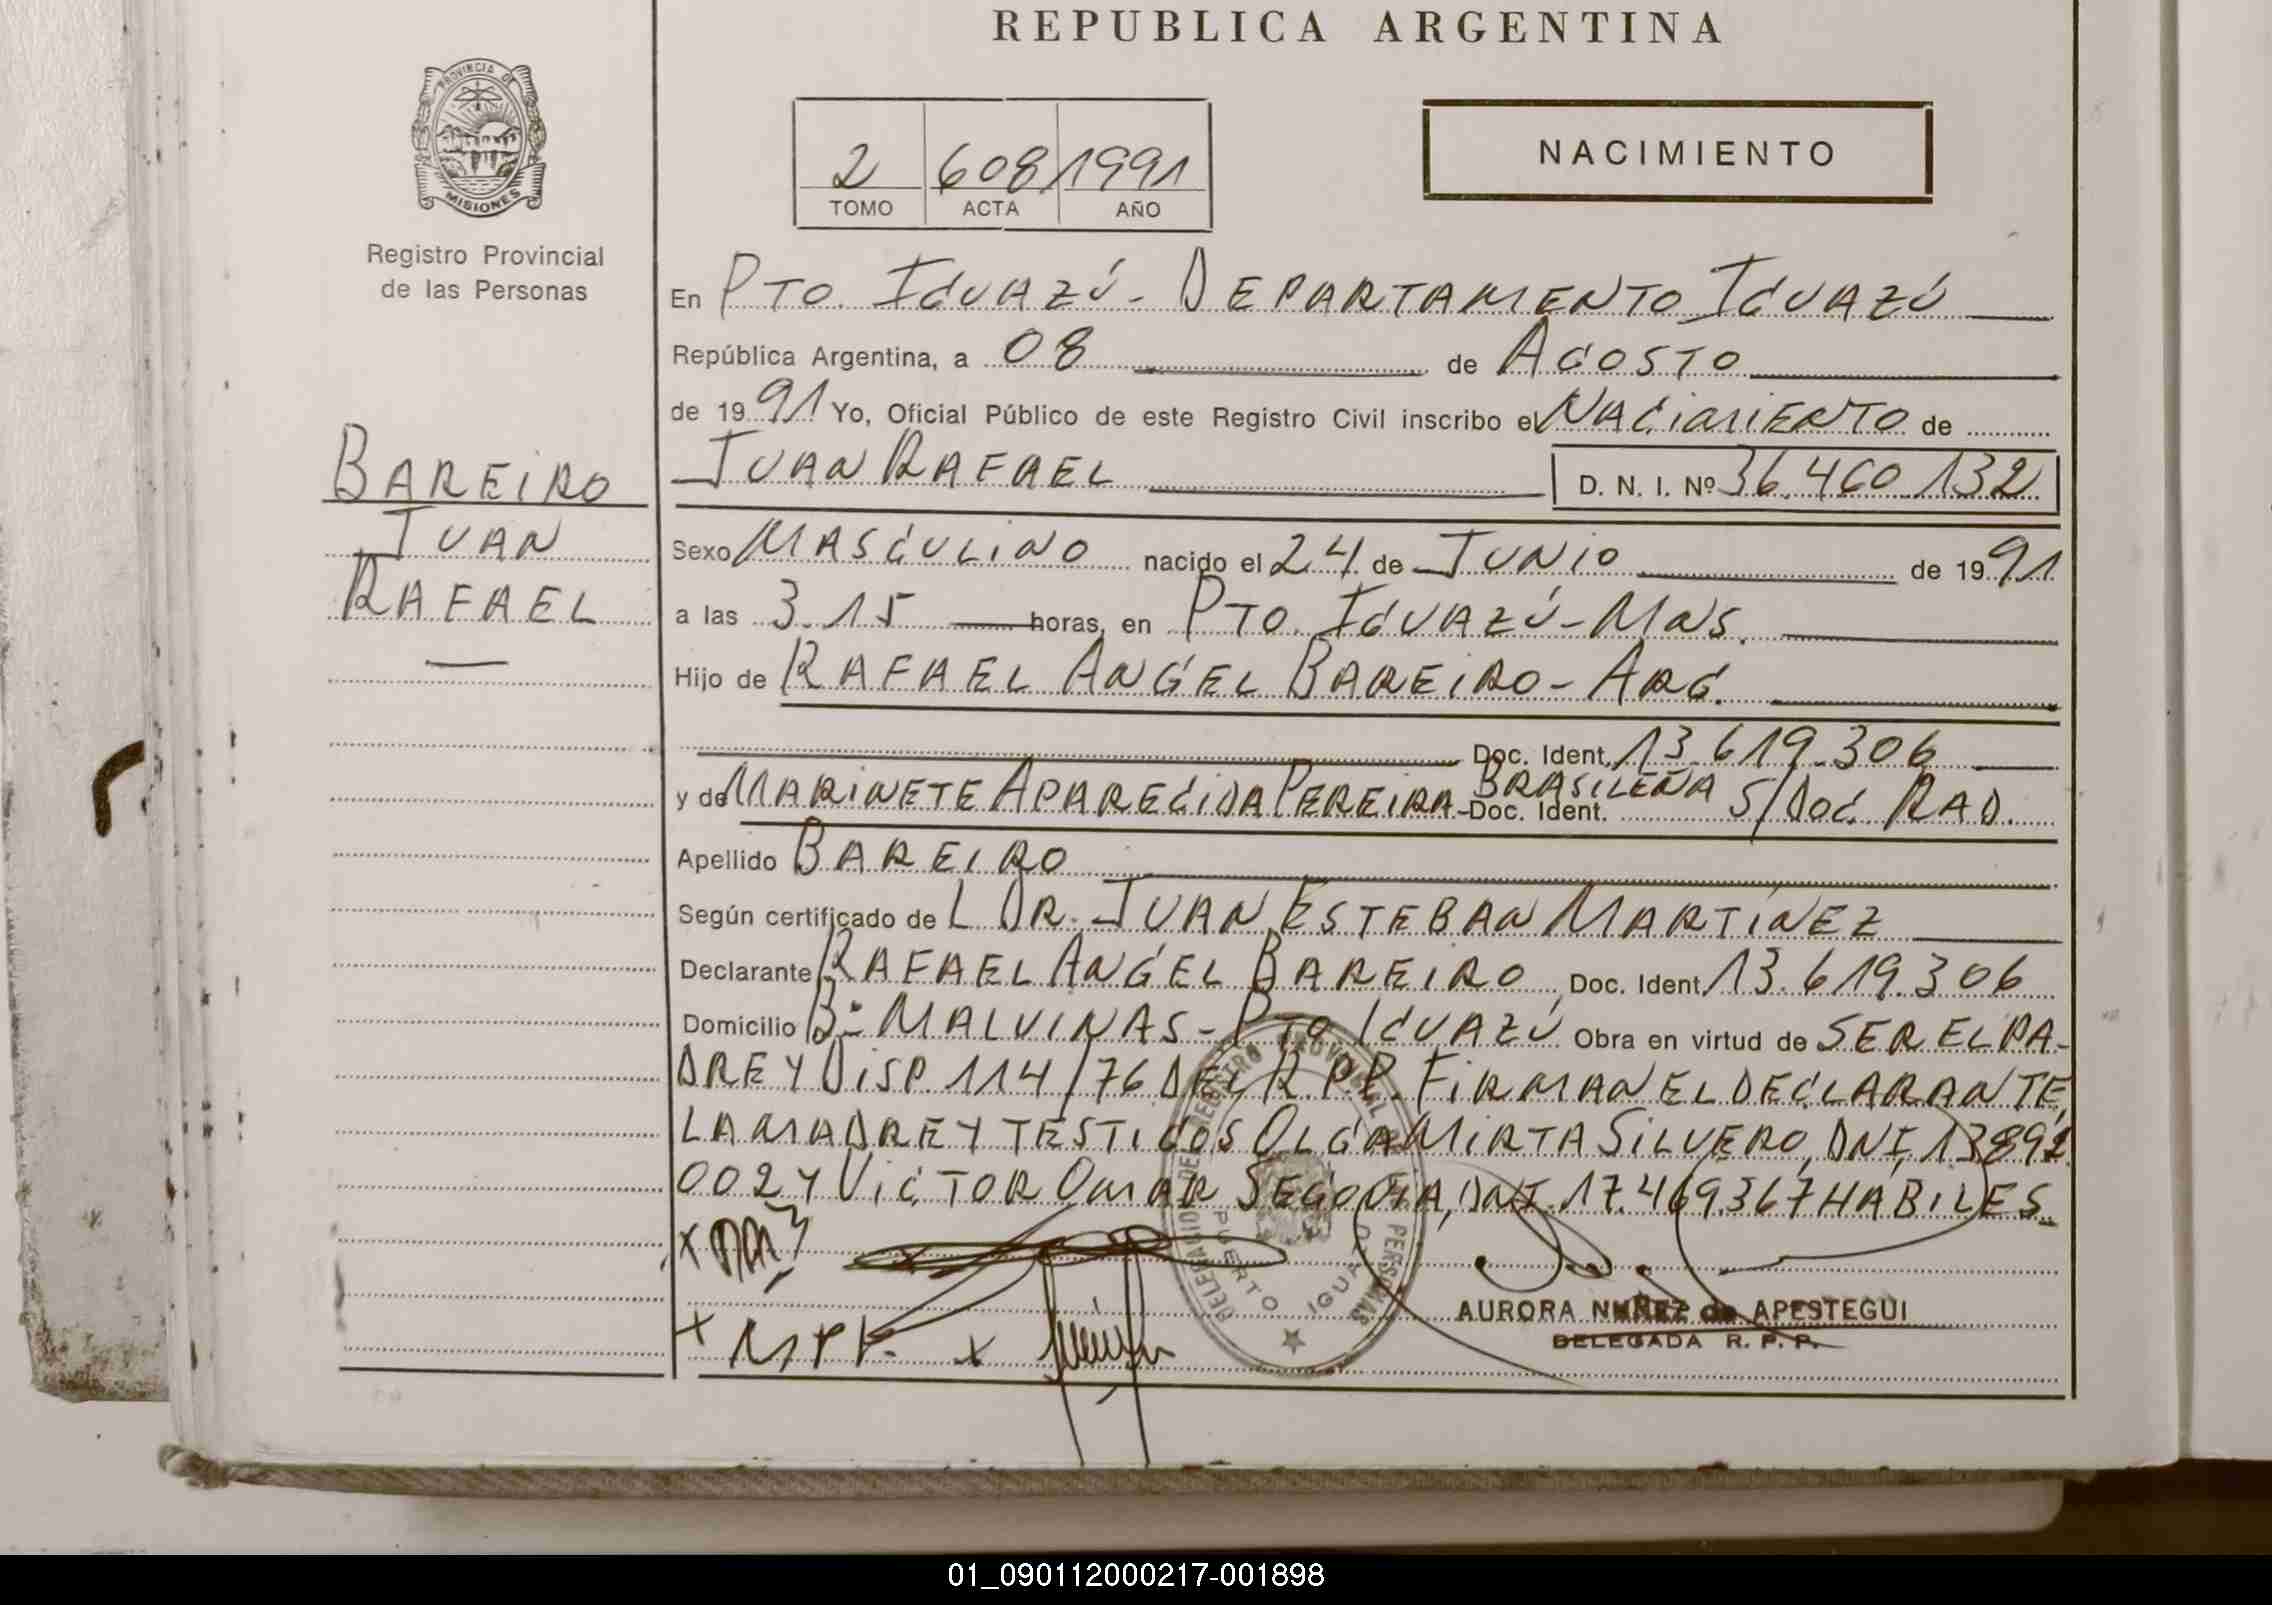 REPUBLICA ARGENTINA
PROVINCIA DE
MISIONES
Registro Provincial
de las Personas
2 608 1991
TOMO ACTA AÑO
NACIMIENTO
En PTO. IGUAZÚ - DEPARTAMENTO IGUAZÚ
República Argentina, a 08 de AGOSTO
de 1991 Yo, Oficial Público de este Registro Civil inscribo el NACIMIENTO de
JUAN RAFAEL D. N. I. Nº 36.460.132
BAREIRO
JUAN
RAFAEL
Sexo MASCULINO nacido el 24 de JUNIO de 1991
a las 3.15 horas, en PTO. IGUAZÚ - MNS.
Hijo de RAFAEL ANGEL BAREIRO - ARG.
Doc. Ident. 13.619.306
y de MARINETE APARECIDA PEREIRA - BRASILEÑA Doc. Ident. S/DOC. RAD.
Apellido BAREIRO
Según certificado de L DR. JUAN ESTEBAN MARTÍNEZ
Declarante RAFAEL ANGEL BAREIRO Doc. Ident. 13.619.306
Domicilio Bº MALVINAS - PTO IGUAZÚ Obra en virtud de SER EL PA-
DRE Y DISP. 114/76 DEL R.P.P. FIRMAN EL DECLARANTE,
LA MADRE Y TESTIGOS OLGA MIRTA SILVERO, DNI, 13892
002 Y VICTOR OMAR SEGOVIA, DNI. 17.469.367 HABILES.
DELEGACION DEL REGISTRO PROVINCIAL DE LAS PERSONAS
PUERTO IGUAZU
AURORA NUÑEZ de APESTEGUI
DELEGADA R. P. P.
01_090112000217-001898